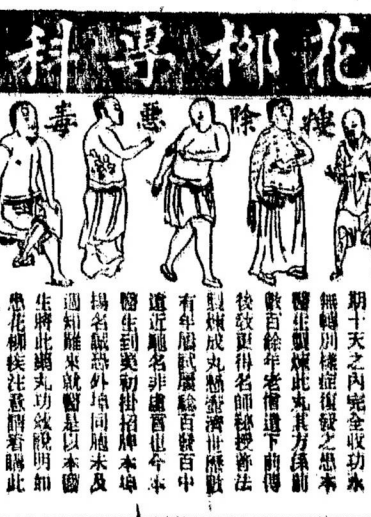 花柳專科
除惡毒
期十天之內完全收功永
無轉別樣症復發之患本
醫生製煉此丸其方係前
數百餘年老僧遺下前傳
後教更得名師秘授普法
製煉成丸濟世歷數
有年屢試屢驗百發百中
遠近馳名非虛言也今本
醫生到美初掛招牌本埠
揚名誠恐外埠同胞未及
週知難來就醫是以本醫
生將此丸功效說明如
患花柳疾注意請看購此